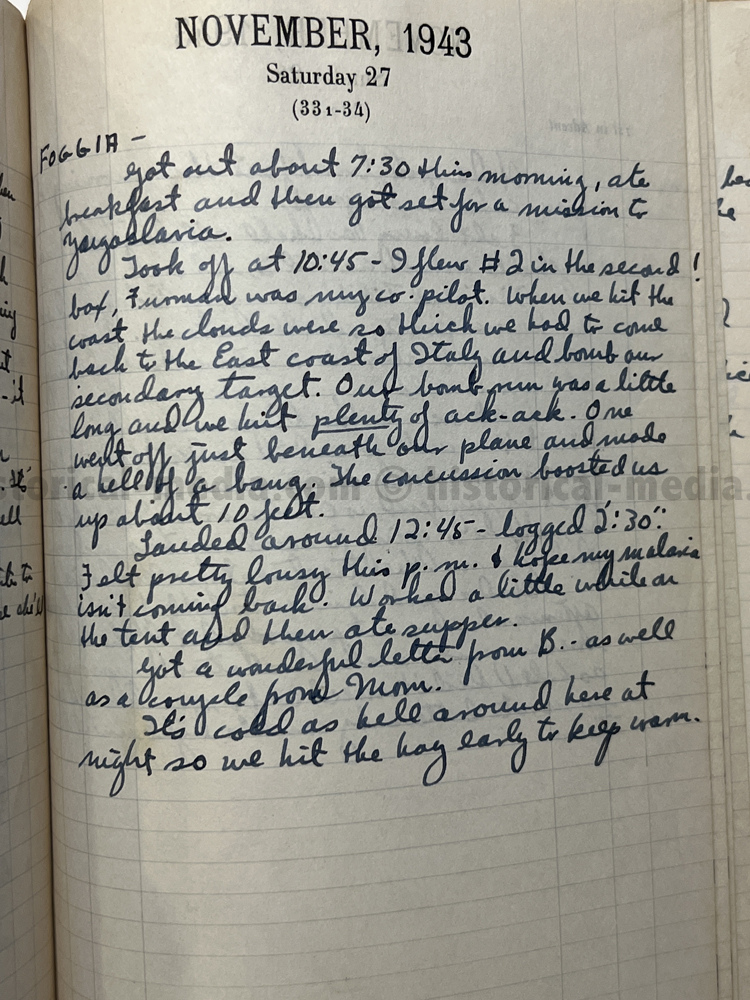 NOVEMBER, 1943
Saturday 27
(331-34)
FOGGIA —
Got out about 7:30 this morning, ate
breakfast and then got set for a mission to
Yugoslavia.
Took off at 10:45 - I flew #2 in the second !
box, Furman was my co-pilot. When we hit the
coast the clouds were so thick we had to come
back to the East coast of Italy and bomb our
secondary target. Our bomb run was a little
long and we hit plenty of ack-ack. One
went off just beneath our plane and made
a hell of a bang. The concussion boosted us
up about 10 feet.
Landed around 12:45 - logged 2:30.
Felt pretty lousy this p.m. & hope my malaria
isn't coming back. Worked a little while on
the tent and then ate supper.
Got a wonderful letter from B. - as well
as a couple from Mom.
It's cold as hell around here at
night so we hit the hay early to keep warm.
historical-media.com © historical-media.